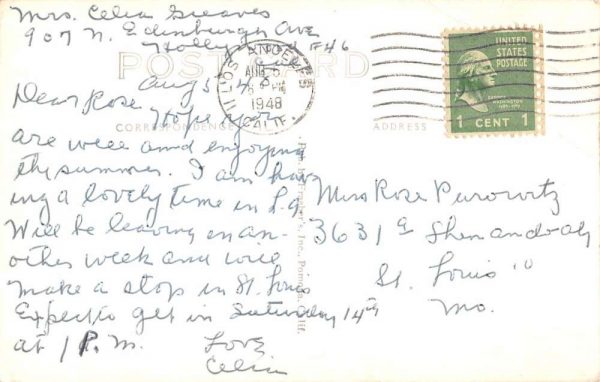 Mrs. Celia Greaves
907 N. Edinburgh Ave
Hollywood #46
POST CARD
Cal.
Aug 5 - 48
LOS ANGELES
11
AUG 5
PM
1948
CALIF.
UNITED
STATES
POSTAGE
WASHINGTON
1 CENT 1
Dear Rose
CORRESPONDENCE
ADDRESS
Hope you
are well and enjoying
the summer. I am hav
ing a lovely time in L.A.
Will be leaving in an-
other week and will
make a stop in St. Louis
Expect to get in Saturday 14th
at 1 P.M. Love
Celia
Inc., Pomona, Calif.
Miss Rose Purowitz
3631 a Shenandoah
St. Louis 10
Mo.